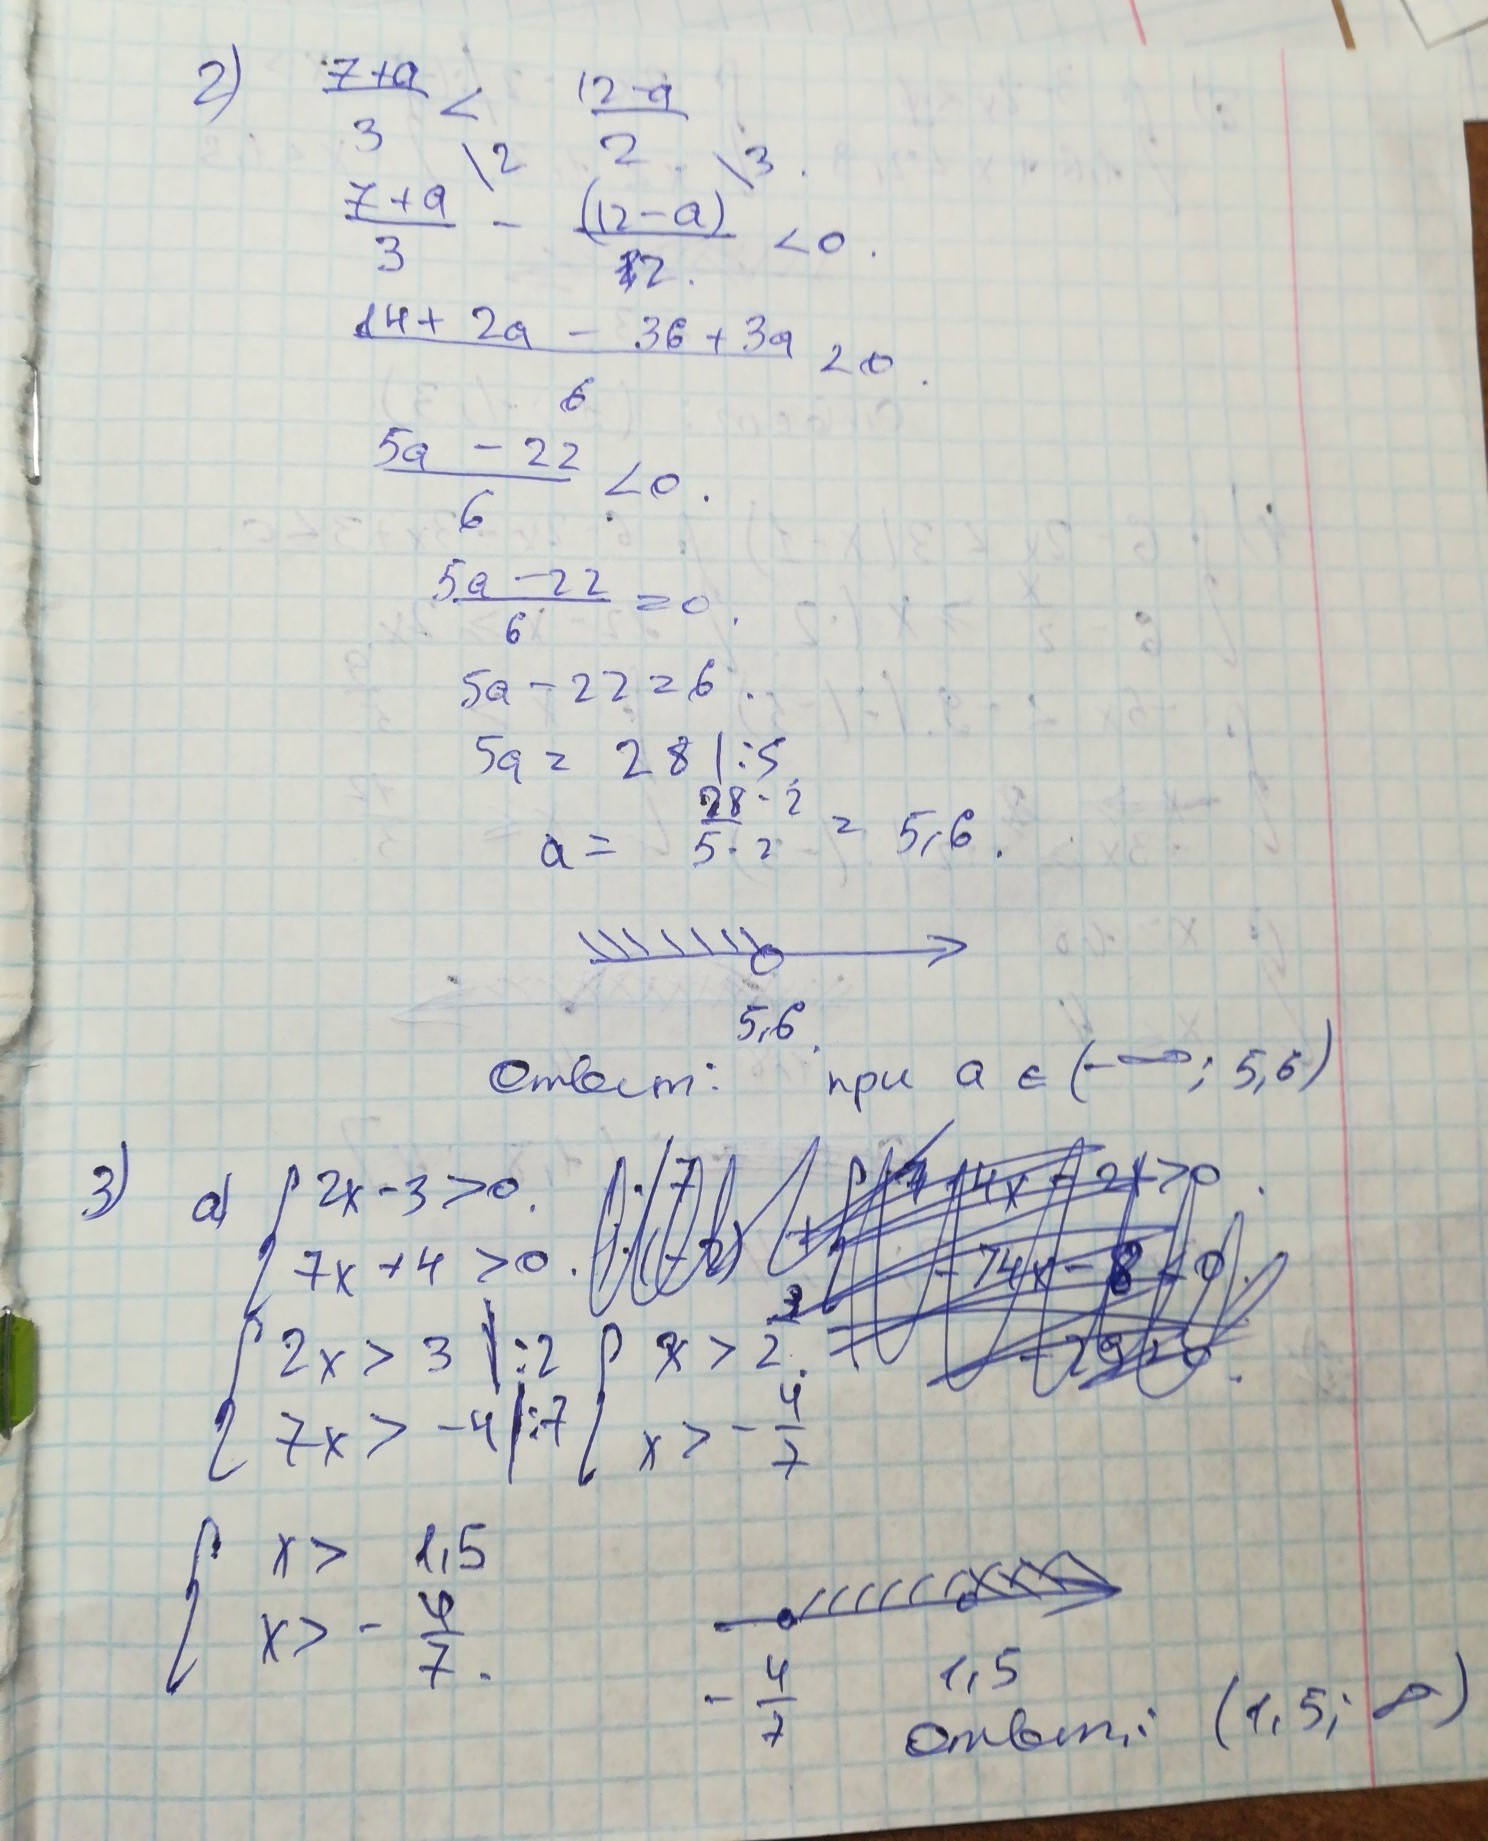 2) 7+a/3 < 12-a/2
7+a/3 \2 - (12-a)/2 \3 <0.
14+2a-36+3a/6 <0.
5a-22/6 <0.
5a-22/6 =0.
5a-22=6.
5a=28 |:5
a= 28·2/5·2 = 5,6.
5,6.
Ответ: при a ∈ (-∞; 5,6)
3) а) { 2x-3>0.
7x+4>0.
{ 2x>3 |:2 { x> 3/2.
7x>-4 |:7 x>-4/7
{ x> 1,5
x>-4/7.
-4/7 1,5
Ответ: (1,5; ∞)